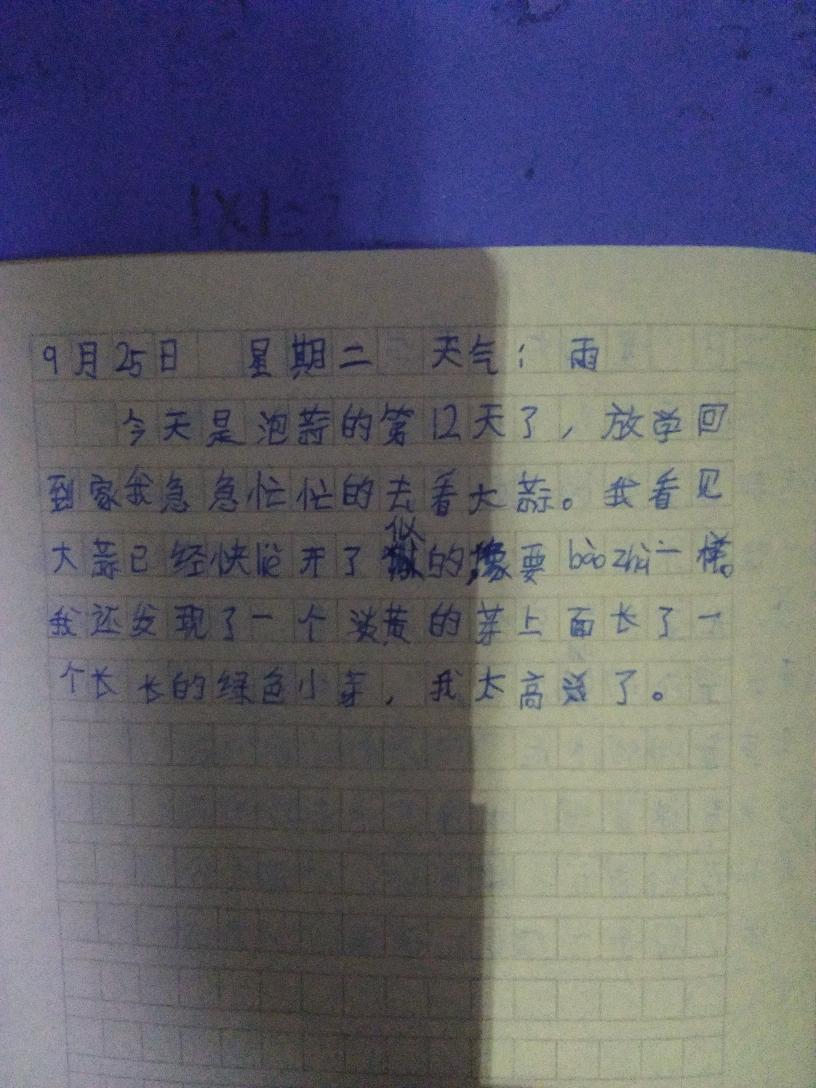 1×1=?
9月25日 星期二 天气：雨
今天是泡蒜的第12天了，放学回
到家我急急忙忙的去看大蒜。我看见
大蒜已经快liè开了似的,像要bàozhà一样。
我还发现了一个淡黄的芽上面长了一
个长长的绿色小芽，我太高兴了。